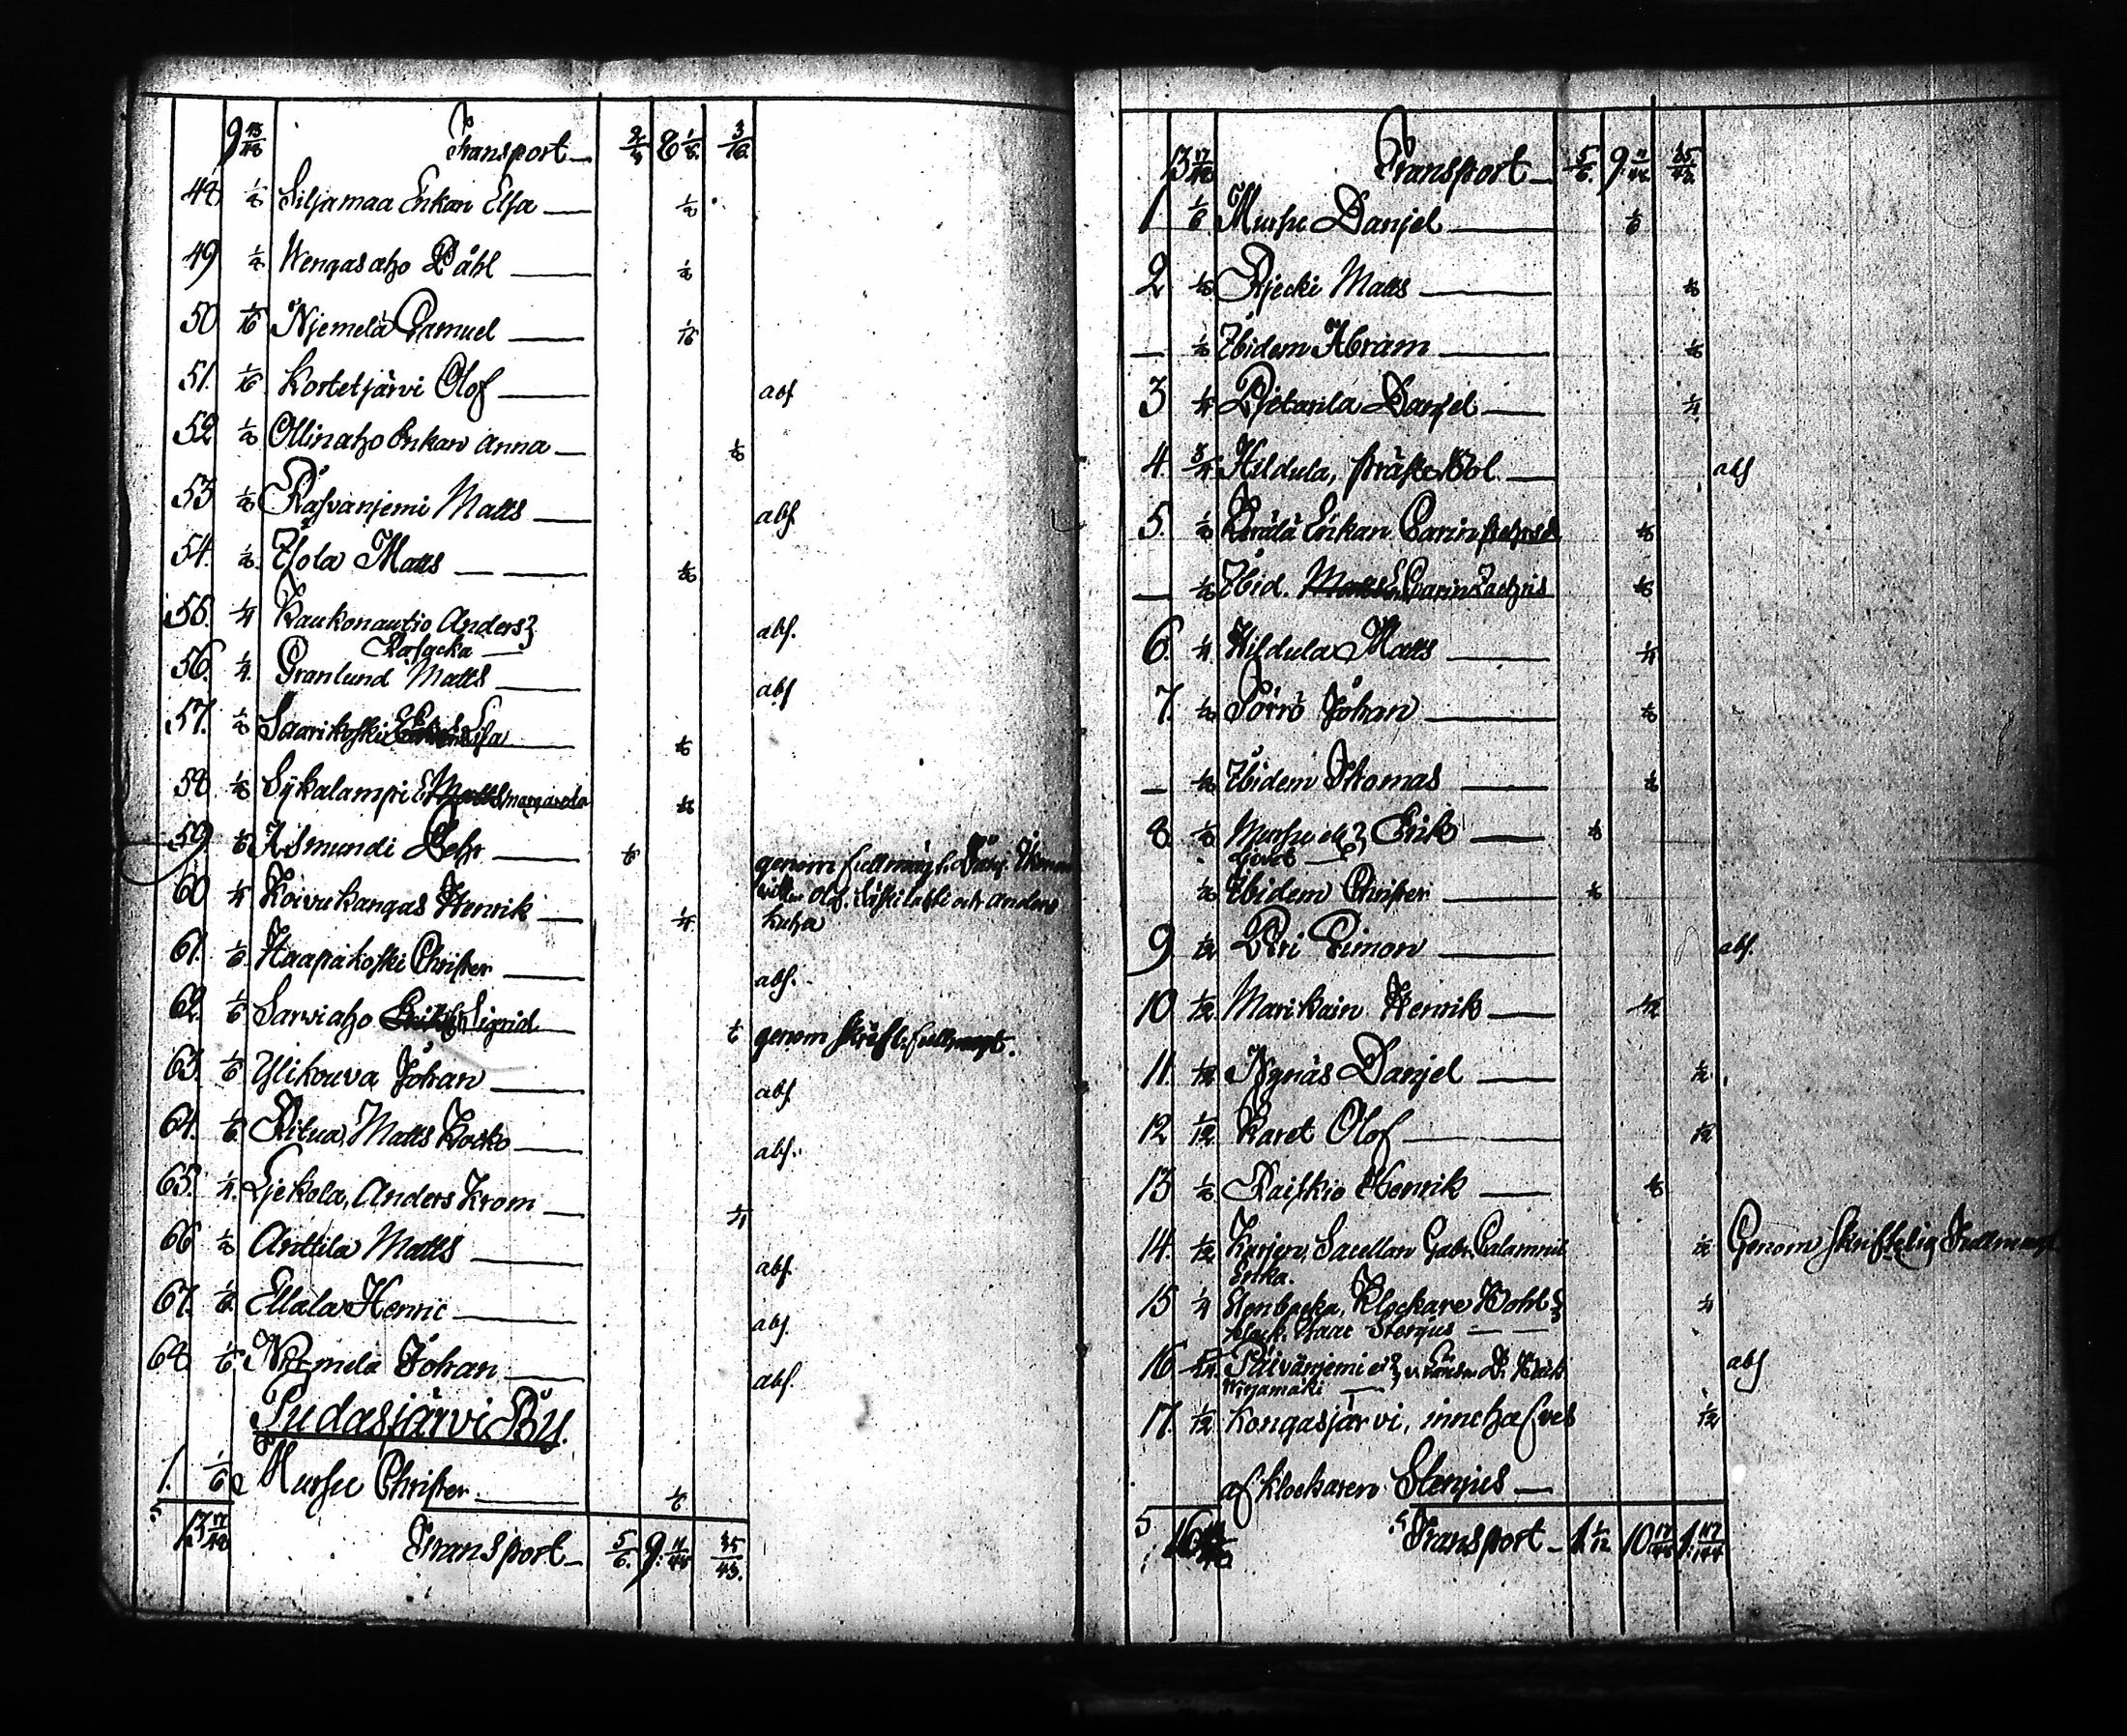 9 43/48 Transport 2/3 8 1/8 3/16
48. 1/8 Siljamaa Enkan Elsa 1/8
49 1/8 Wengasaho Påhl 1/8
50 1/16 Njemelä Samuel 1/16
51. 1/16 Kortetjärvi Olof abs
52 1/8 Ollinaho Enkan Anna 1/8
53 1/8 Rasvanjemi Matts abs
54. 1/8 Ylola Matts 1/8
55. 1/4 Kaukonautio Anders
Rasacka abs.
56. 1/4 Granlund Matts abs
57. 1/8 Saarikoski Lisa 1/8
58 1/8 Sykalampi E. Matts Margareta 1/8
59 1/6 Asmundi Pehr 1/6 genom fullmägt.
60 1/4 Koivukangas Henrik 1/4 Olof och Anders
Kuha
61. 1/6 Haapakoski Christer abs.
62. 1/6 Sarviaho Erik Sigrid 1/6 genom skriftl. fullmagt.
63 1/6 Ylikouva Johan abs
64. 1/6 Ritua, Matts Kocko abs.
65. 1/4 Ljekola, Anders Krom 1/4
66 1/8 Anttila Matts abs
67. 1/6 Ellala Henric abs.
68 1/6 Njemelä Johan abs.
Pudasjärvi By.
1. 1/6 Hursu Christer 1/6
13 17/48 Transport 5/6. 9 11/48 35/48.
13 17/48 Transport 5/6. 9 11/48 35/48.
1 1/6 Hursu Danjel 1/6
2 1/8 Rjecki Matts 1/8
— 1/8 Ibidem Abram 1/8
3 1/4 Pjetarila Danjel 1/4
4. 3/4 Hildula, präste Bol. abs
5. 1/8 Enkan Carin 1/8
— 1/8 Ibid. Matts Carin Zachris 1/8
6. 1/4 Hildula Matts 1/4
7. 1/8 Törrö Johan 1/8
— 1/8 Ibidem Thomas 1/8
8 1/8 Hursu Erik 1/8
1/8 Ibidem Christer 1/8
9 1/12 Piri Simon abs.
10 1/12 Marikain Henrik 1/12
11. 1/12 Nygnäs Danjel 1/12
12 1/12 Karet Olof 1/12
13 1/8 Raiskio Henrik 1/8
14. 1/12 Kurjen, Sacellan Gabr. Calamnii 1/12 Genom skriftelig Fullmagt
Enka.
15 1/4 Stenbacka, Klockare Bohl 1/4
klock. Isaac Stenjus
16 Päivärjemi abs
Wirjamäki
17. 1/12 Kongasjärvi, innehafves 1/12
af klockaren Stenjus
16 Transport 1 1/12 10 17/48 1 117/144